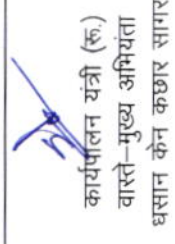 कार्यपालन यंत्री (रू.)
वास्ते–मुख्य अभियंता
धसान केन कछार सागर